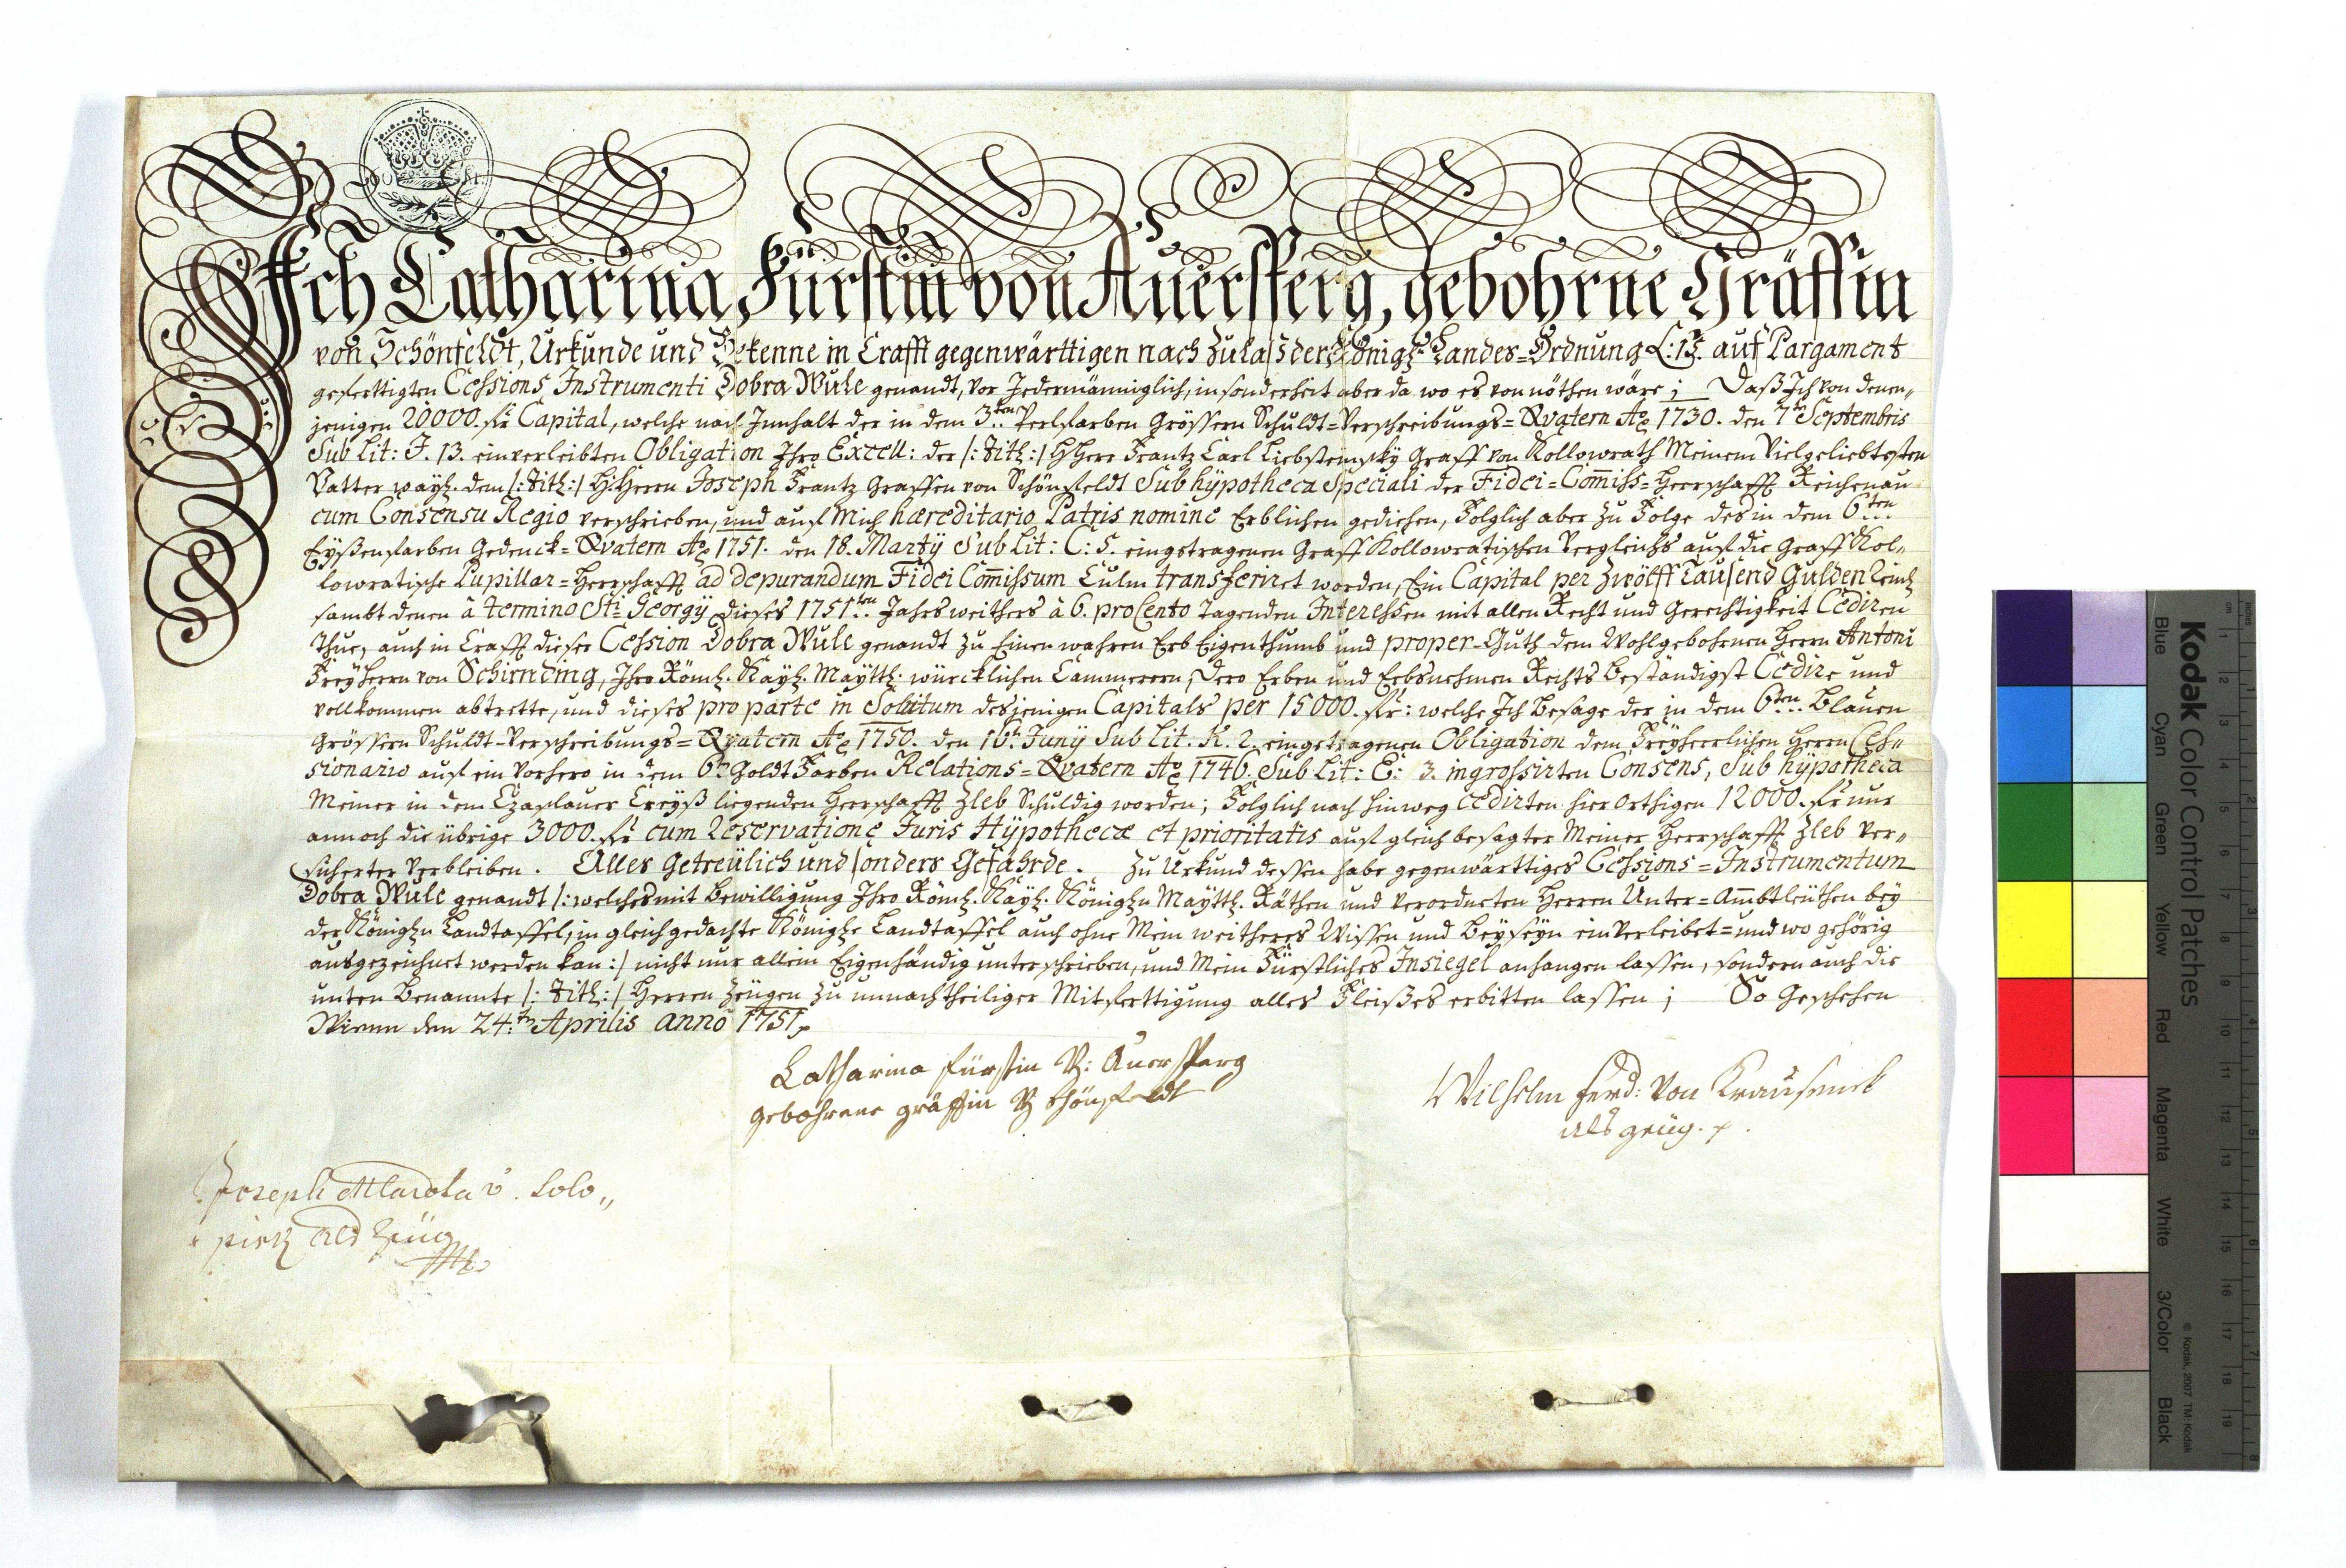 Ich Catharina Fürstin von Auersperg, gebohrne Gräffin
von Schönfeldt, Urkunde und Bekenne in Crafft gegenwärttigen nach Zulaß der Königl. Landes=Ordnung L: 13. auf Pargament
gefferttigten Cessions Instrumenti Dobra Wule genandt, vor Jedermänniglich, in sonderheit aber da wo es von nöthen wäre; Daß Ich von denen„
jenigen 20000. fl: Capital, welche nach Innhalt der in dem 3ten Perlfarben Grössern Schuldt=Verschreibungs=Qvatern Ao 1730. den 7ten Septembris
Sub Lit: F. 13. einverleibten Obligation Ihro Excell: der /: Titl: / H: Herr Frantz Carl Liebsteinsky Graff von Kollowrath Meinem Vielgeliebtesten
Vatter wayl. dem /: Titl: / H: Herrn Joseph Frantz Graffen von Schönfeldt Sub hÿpotheca Speciali der Fidei=Com̄iss=Herrschafft Reichenau
cum Consensu Regio verschrieben, und auf Mich hæreditario Patris nomine Erblichen gediehen, Folglich aber zu Folge des in dem 6ten
Eysenfarben Gedenck=Qvatern Ao 1751. den 18. Martÿ Sub Lit: C: 5. eingetragenen Graff Kollowratischen Vergleichs auf die Graff Kol„
lowratische Pupillar=Herrschafft ad depurandum Fidei Com̄issum Culm transferiret worden, Ein Capital per Zwölff Tausend Gulden Reinl
sambt denen à termino Sti Georgÿ dieses 1751ten Jahrs weithers à 6. pro Cento tragenden Interessen mit allen Recht und Gerechtigkeit Cediren
thue, auch in Crafft dieser Cession Dobra Wule genandt zu Einen wahren Erb Eigenthumb und proper-Guth dem Wohlgebohrnen Herrn Antoni
Freÿherrn von Schirnding, Ihro Röml. Kayl. Maÿttl. würcklichen Cammerern, dero Erben und Erbsnehmen Rechts Beständigst Cedire und
vollkommen abtrette, und dieses pro parte in Solutum desjenigen Capitals per 15000. fl: welche Ich Besage der in dem 6ten Blauen
Grössern Schuldt-Verschreibungs=Qvatern Ao 1750. den 16ten Junÿ Sub Lit. K. 2. eingetragenen Obligation dem Freÿherrlichen Herrn Ces„
sionario auf ein Vorhero in dem 6ten Goldt Farben Relations=Qvatern Ao 1746. Sub Lit: E: 3. ingrossirten Consens, Sub hÿpotheca
Meiner in dem Czaslauer Creÿß liegenden Herrschafft Zleb Schuldig worden; Folglich nach hinweg cedirten hier orthigen 12000. fl: nur
annoch die übrige 3000. fl: cum Reservatione Juris Hÿpothecæ et prioritatis auf gleich besagter Meiner Herrschafft Zleb ver„
sicherter verbleiben. Alles Getreülich und sonders Gefährde. Zu Urkund dessen habe gegenwärttiges Cessions=Instrumentum
Dobra Wule genandt /: welches mit Bewilligung Ihro Röml. Kayl. Königln Maÿttl. Räthen und verordneten Herren Unter=Ambtleüthen beÿ
der Königln Landtaffel, in gleich gedachte Königle Landtaffel auch ohne Mein weitheres Wissen und Beÿseÿn einverleibet=und wo gehörig
ausgezeichnet werden kan :/ nicht nur allein Eigenhändig unterschrieben, und Mein Fürstliches Insiegel anhangen lassen, sondern auch die
unten Benannte /: Titl: / Herren Zeügen zu unnachtheiliger Mitferttigung alles Fleißes erbitten lassen; So Geschehen
Wienn den 24ten Aprilis anno 1751.
Catharina fürstin V: Auersperg
gebohrene gräffin V schönfeldt
Wilhelm Ferd: von
als zeüg.
Joseph v. Solo„
pisk als Zeüg
Kodak Color Control Patches
Blue Cyan Green Yellow Red Magenta White 3/Color Black
© Kodak, 2007 TM: Kodak